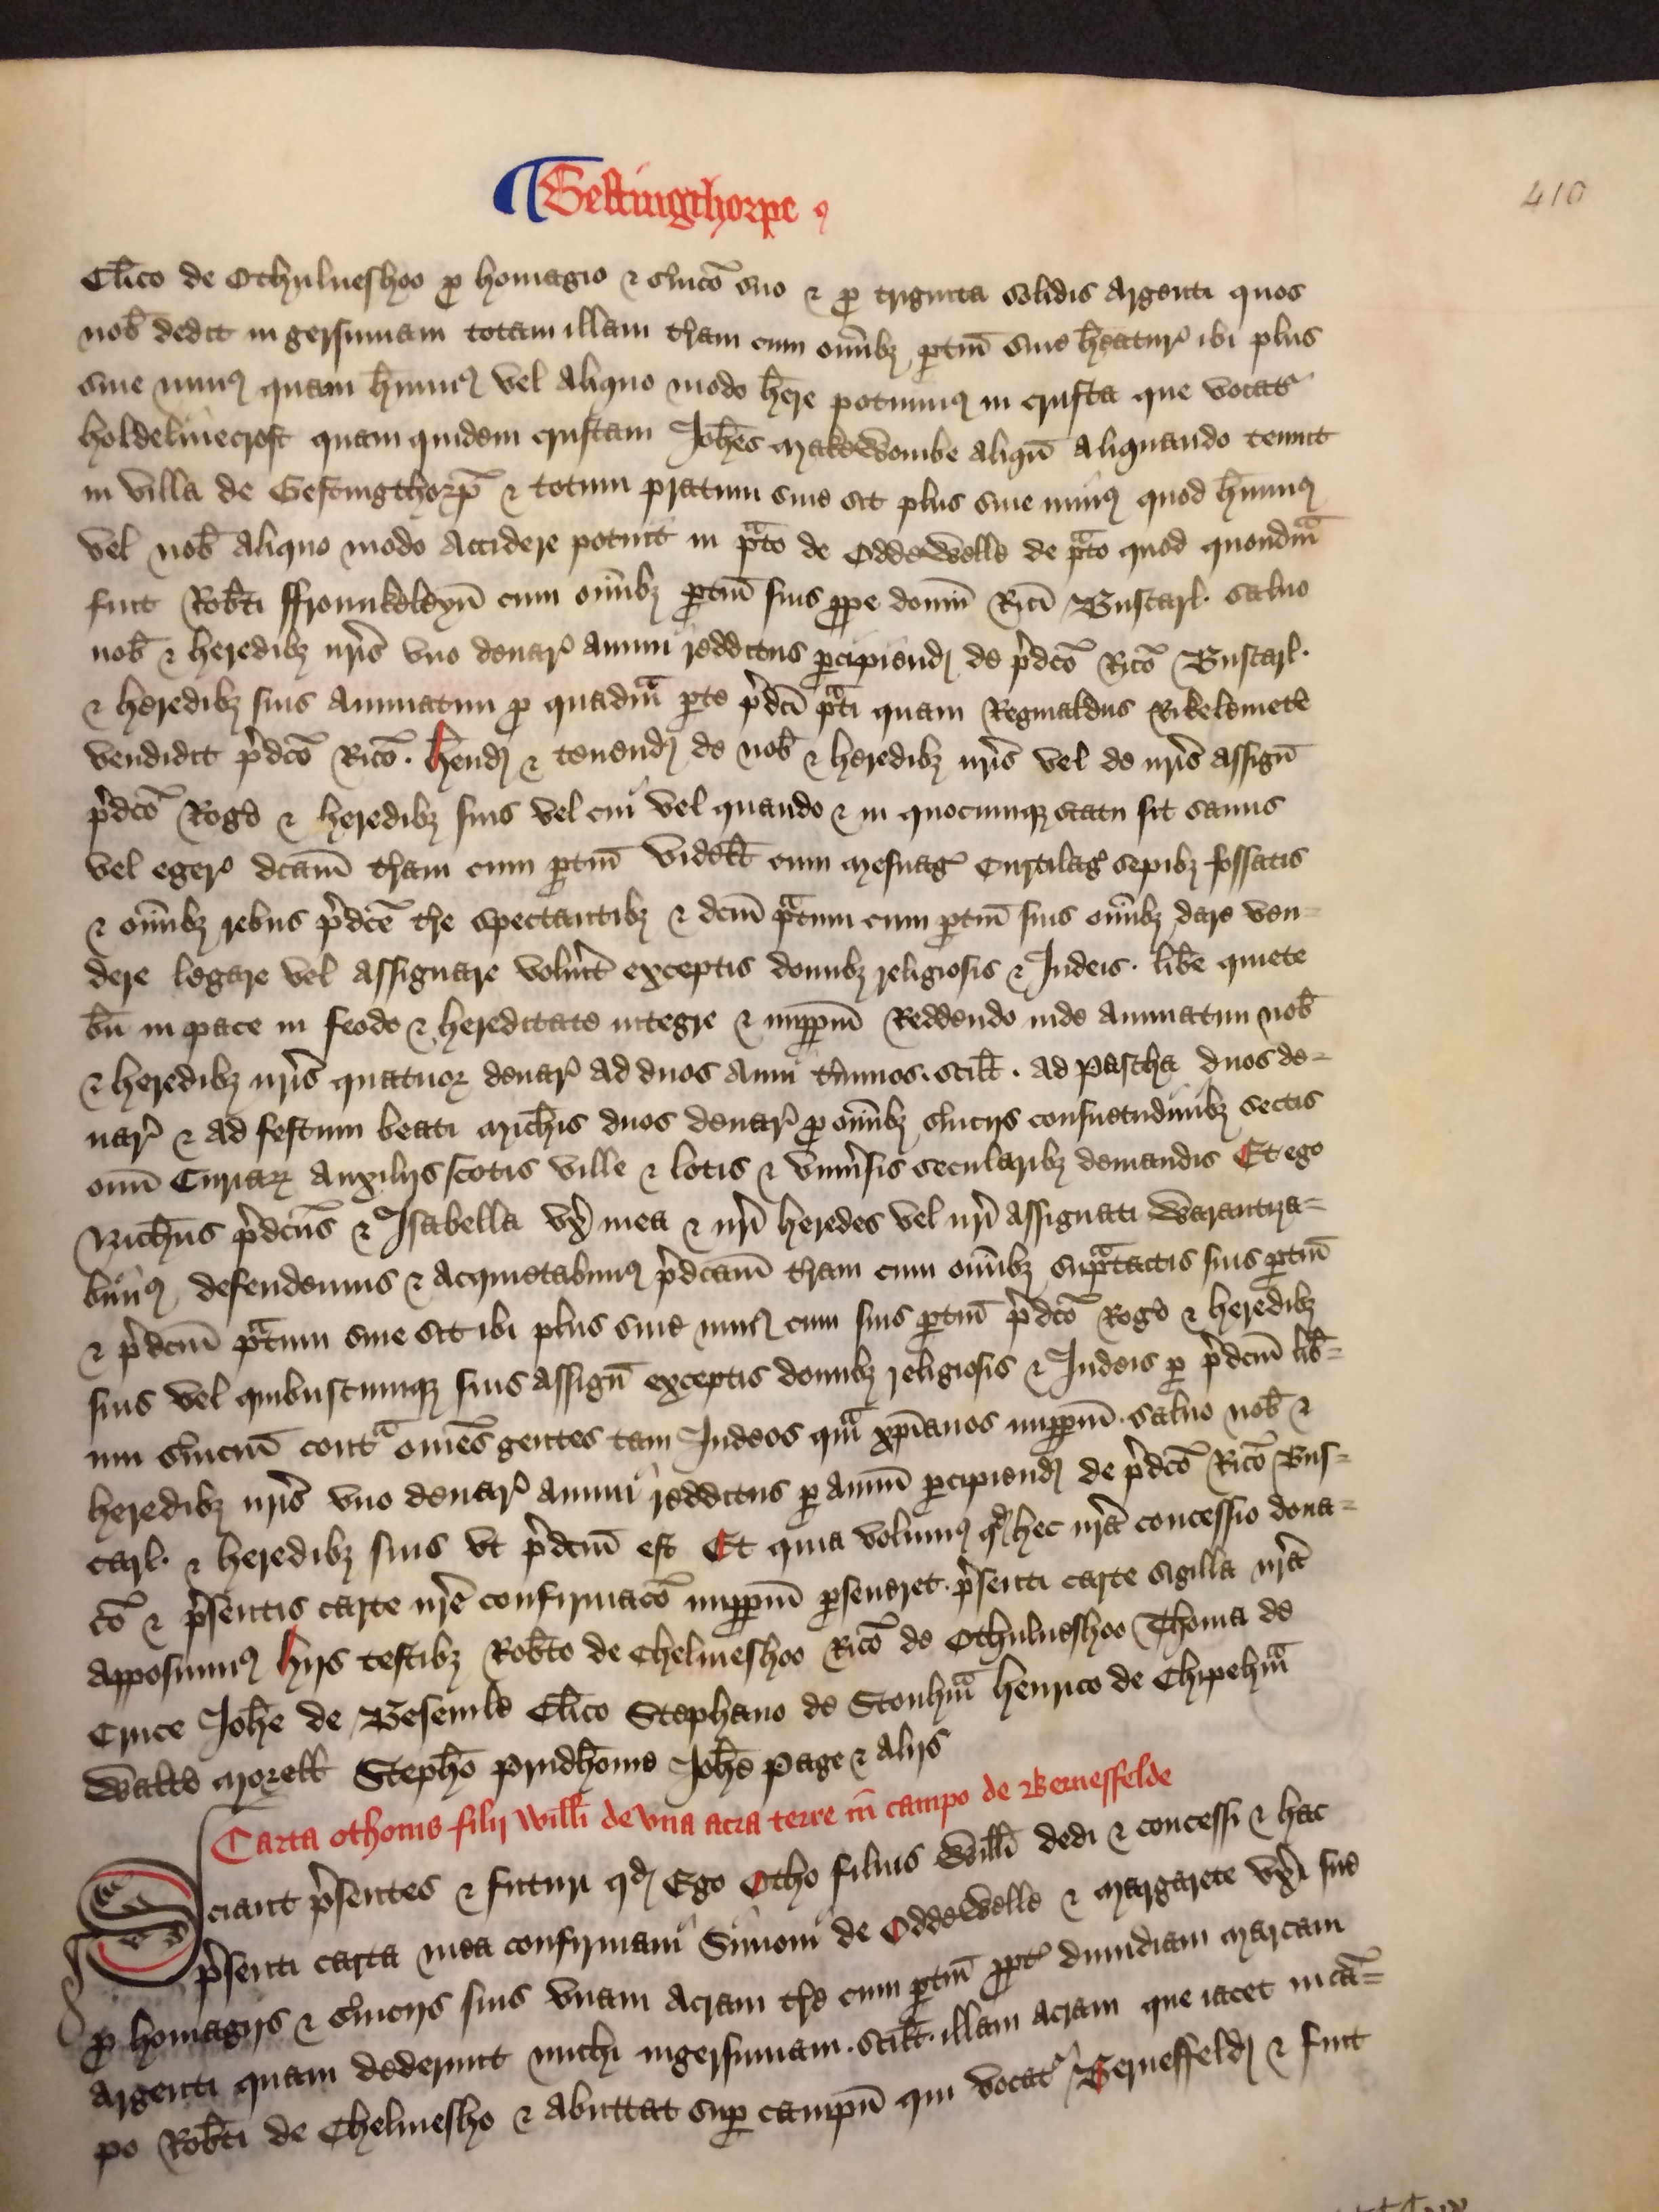 ¶ Gestingthorpe
410
Cl̄ico de Othulueshoo ꝓ homagio ⁊ s̉uicō suo ⁊ ꝓ triginta solidis argenti quos
nob̄ dedit in gersumam totam illam t̉ram cum om̄ibꝫ ꝑtin̄ siue h̄eatur ibi plus
siue minꝰ quam h̄uimꝰ vel aliquo modo h̄ere potuimꝰ in crufta que vocat̉
holdeluiecroft quam quidem cruftam Joh̄es Makewombe aliqn̄ aliquando tenuit
in villa de Gestingthorp̄ ⁊ totum pratum siue sit plus siue minꝰ quod h̄uimꝰ
vel nob̄ aliquo modo accidere potuit in pᵃto de Oddewelle de pᵃto quod quondᵃm
fuit Rob̄ti ffrounkeleyn̄ cum om̄ibꝫ ꝑtin̄ suis ꝓpe domū Ric̄i Buscarl. saluo
nob̄ ⁊ heredibꝫ nr̄is vno denar̉ annui redditus ꝑcipiend̉ de p̉dc̄o Ric̄o Buscarl.
⁊ heredibꝫ suis annuatim ꝓ quadᵃm ꝑte p̉dc̄i pᵃti quam Reginaldus Rikelemete
vendidit p̉dc̄o Ric̄o. h̄end̉ ⁊ tenend̉ de nob̄ ⁊ heredibꝫ nr̄is vel de nr̄is assign̄
p̉dc̄o Rog̉o ⁊ heredibꝫ suis vel cui vel quando ⁊ in quocumqꝫ statu sit sanus
vel eger̉ dc̄am t̉ram cum ꝑtin̄ videlꝫ cum mesuag̉ curtilag̉ sepibꝫ fossatis
⁊ om̄ibꝫ rebus p̉dc̄e t̉re spectantibꝫ ⁊ dc̄m pᵃtum cum ꝑtin̄ suis om̄ibꝫ dare ven=
dere legare vel assignare volủit exceptis domibꝫ religiosis ⁊ Judeis. lib̄e quiete
bn̄ in pace in feodo ⁊ hereditate integre ⁊ imꝑpm̄ Reddendo inde annuatim nob̄
⁊ heredibꝫ nr̄is quatuor denar̉ ad duos anni t̉minos. scilꝫ. ad Pascha duos de=
nar̉ ⁊ ad festum beati Mich̄is duos denar̉ ꝓ om̄ibꝫ s̉uicijs consuetudinibꝫ sectis
om̄i Curiaꝝ auxilijs scotis ville ⁊ lotis ⁊ vniủsis secularibꝫ demandis Et ego
Rich̄us p̉dc̄us ⁊ Isabella vx̉ mea ⁊ nr̄i heredes vel nr̄i assignati warantiza=
bimꝰ defendemus ⁊ acquietabimꝰ p̉dc̄am t̉ram cum om̄ibꝫ supᵃtactis suis ꝑtin̄
⁊ p̉dc̄m pᵃtum siue sit ibi plus siue minꝰ cum suis ꝑtin̄ p̉dc̄o Rog̉o ⁊ heredibꝫ
suis vel quibuscumqꝫ suis assign̄ exceptis domibꝫ religiosis ⁊ Judeis ꝑ p̉dc̄m lib̄=
um s̉uiciū contᵃ om̄es gentes tam Judeos qᵃm xp̄ianos imꝑpm̄. saluo nob̄ ⁊
heredibꝫ nr̄is vno denar̉ annui redditus ꝑ annū ꝑcipiend̉ de p̉dc̄o Ric̄o Bus=
carl. ⁊ heredibꝫ suis vt p̉dc̄m est Et quia volumꝰ qd̉ hec nr̄a concessio dona=
cō ⁊ p̉sentis carte nr̄e confirmacō imꝑpm̄ ꝑseueret. p̉senti carte sigilla nr̄a
apposuimꝰ hijs testibꝫ Rob̄to de Chelmeshoo Ric̄o de Othulueshoo Thoma de
Cruce Joh̄e de Beseuile Cl̄ico Stephano de Stonhᵃm henrico de Chipehᵃm
Walt̉o Morell Steph̄o Prudh̄ome Joh̄e Page ⁊ alijs
Carta othonis filij Willi de vna acra terre in campo de Berneffelde
Sciant p̉sentes ⁊ futuri qd̉ Ego Otho filius Willi dedi ⁊ concessi ⁊ hac
p̉senti carta mea confirmaui Simoni de Oddewelle ⁊ Margarete vx̉i sue
ꝓ homagijs ⁊ s̉uicijs suis vnam acram t̉re cum ꝑtin̄ ꝓpt̉ dimidiam marcam
argenti quam dederunt michi in gersumam. scilꝫ. illam acram que iacet in cā=
po Rob̄ti de Chelmesho ⁊ abuttat suꝑ campū qui vocat̉ Berneffeld̉ ⁊ fuit